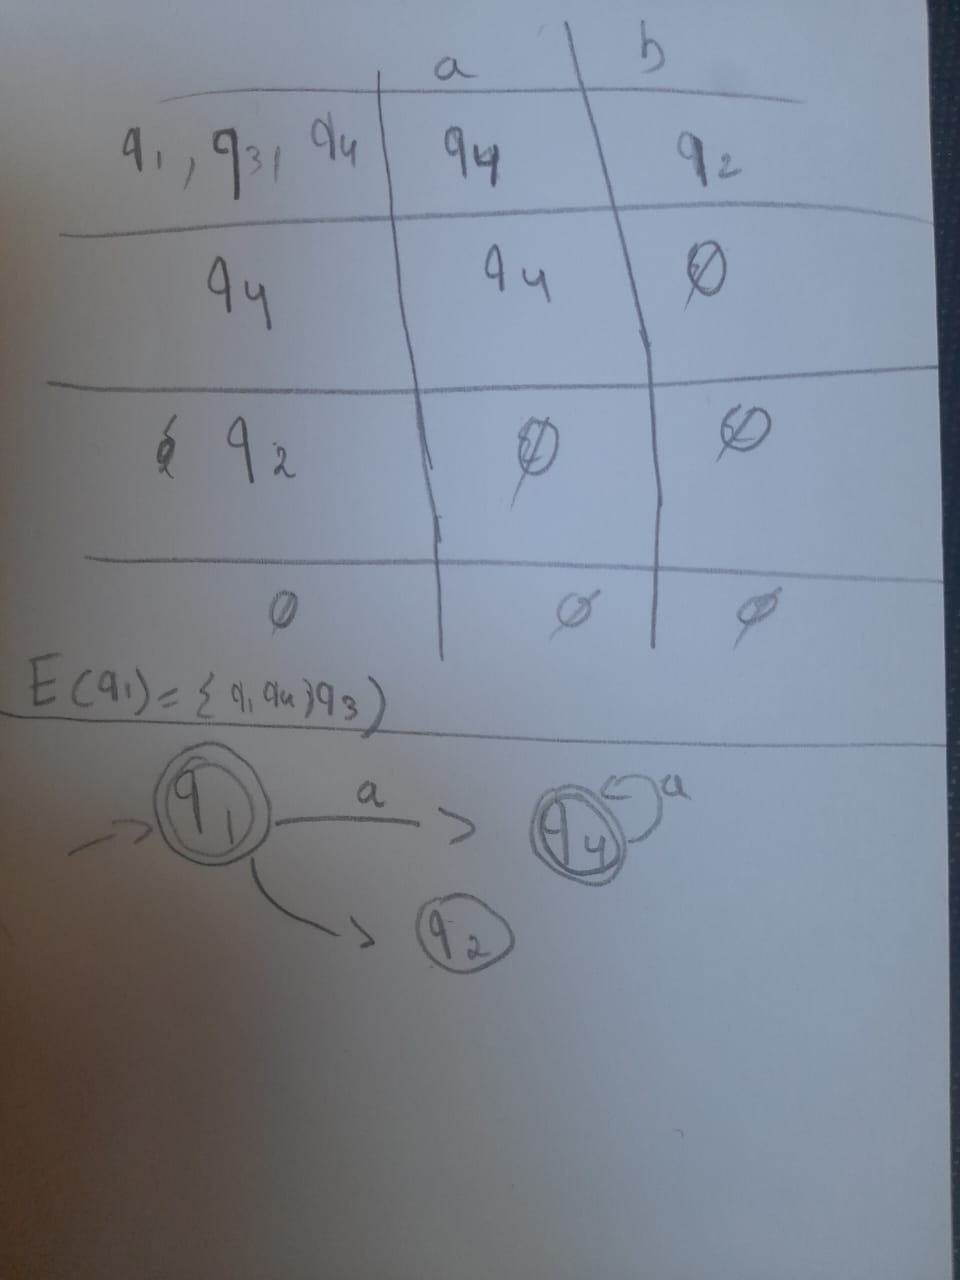 a b
q1, q3, q4 q4 q2
q4 q4 ∅
q2 ∅ ∅
∅ ∅ ∅
E(q1) = { q1 q4 } q3 )
q1 a q4 a
q2